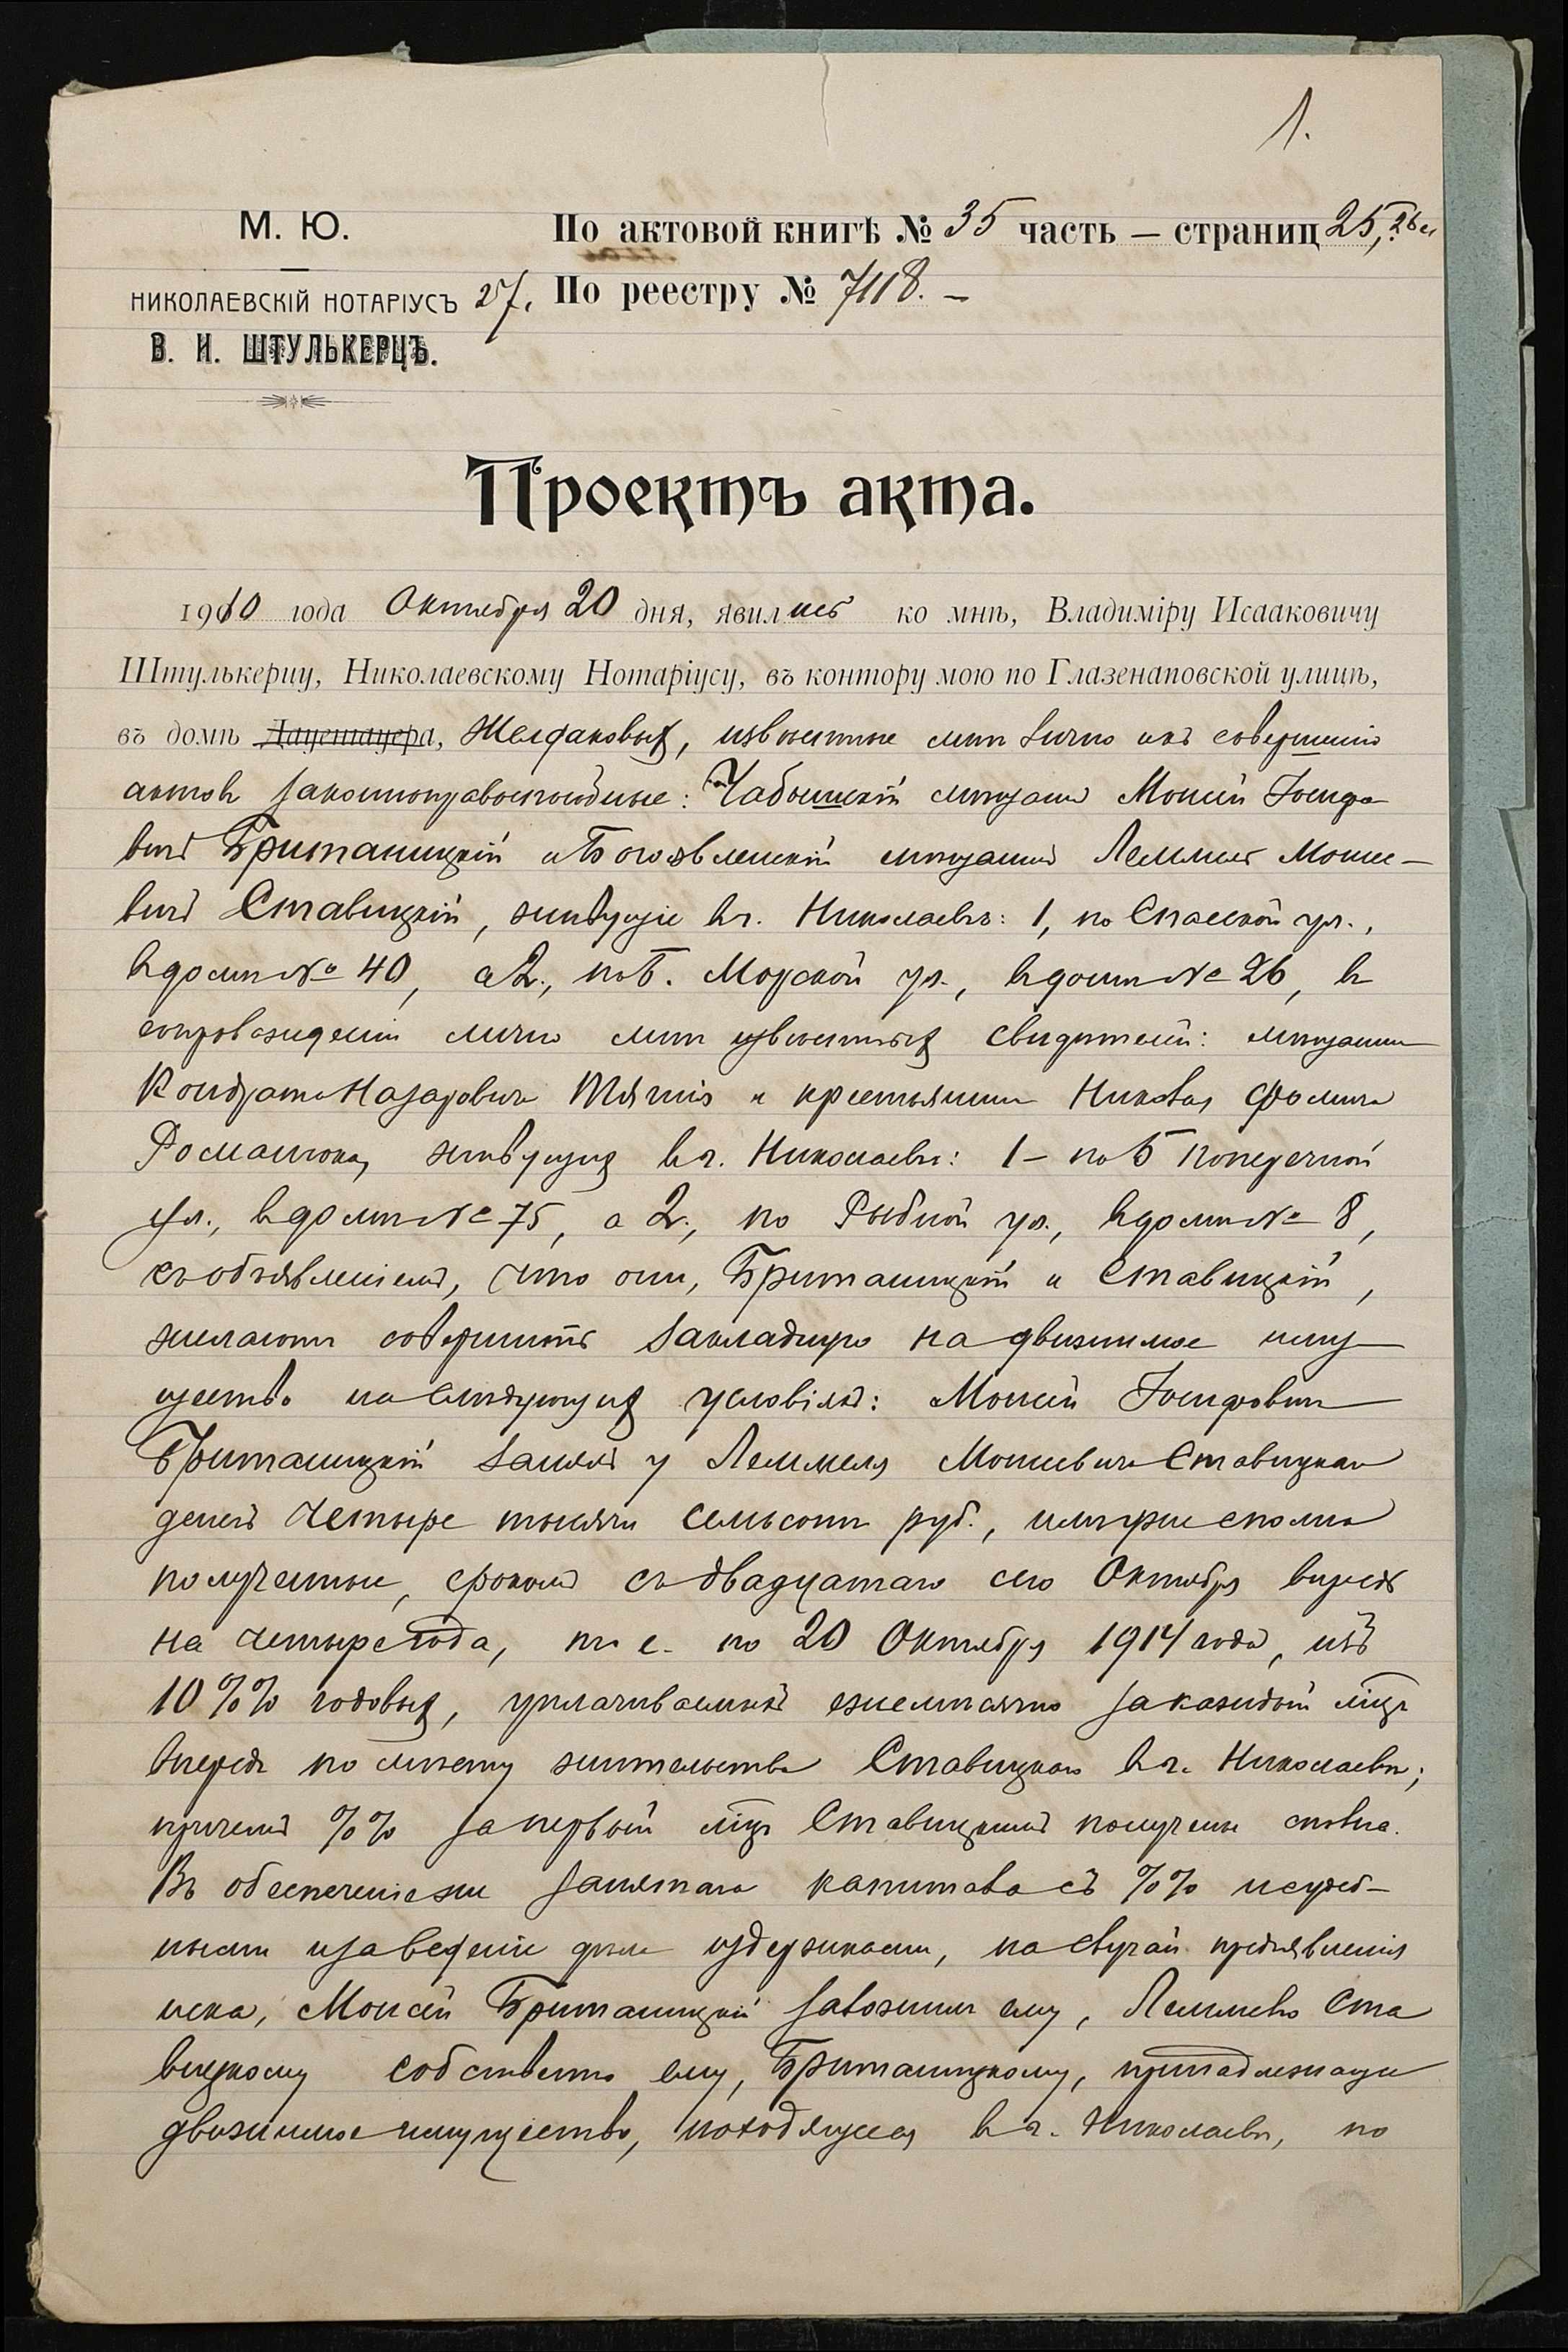 1.
М. Ю.
По актовой книгѣ № 35 часть — страниц 25, 26 и
НИКОЛАЕВСКІЙ НОТАРІУСЪ
27. По реестру № 7118. —
В. И. ШТУЛЬКЕРЦЪ.
Проектъ акта.
1910 года Октября 20 дня, явились ко мнѣ, Владиміру Исааковичу
Штулькерцу, Николаевскому Нотаріусу, въ контору мою по Глазенаповской улицѣ,
въ домѣ Лауешауера, извѣстные мнѣ лично и къ совершенію
актовъ законноправоспособные: мѣщанинъ Моисей Іосифо
вичъ Британицкій и Богоявленскій мѣщанинъ Леммель Мошко-
вичъ Ставицкій, живущіе въ г. Николаевѣ: 1, по Спасской ул.,
въ домѣ № 40, а 2., по Б. Морской ул., въ домѣ № 26, въ
сопровожденіи лично мнѣ извѣстныхъ свидѣтелей: мѣщанина
Кондрата Назаровича и крестьянина Николая Фомича
Романюка, живущихъ въ г. Николаевѣ: 1 – по 5 Поперечной
ул., въ домѣ № 75, а 2., по Рыбной ул., въ домѣ № 8,
съ объявленіемъ, что они, Британицкій и Ставицкій,
желаютъ совершить закладную на движимое иму
щество на слѣдующихъ условіяхъ: Моисей Іосифовичъ
Британицкій занялъ у Леммеля Мошковича Ставицкаго
денегъ четыре тысячи семьсотъ руб., имъ уже сполна
полученные, срокомъ съ двадцатаго сего Октября впредь
на четыре года, т. е. по 20 Октября 1914 года, изъ
10%% годовыхъ, уплачиваемыхъ ежемѣсячно за каждый мѣц
впередъ по мѣсту жительства Ставицкаго въ г. Николаевѣ;
причемъ %% за первый мѣц Ставицкимъ получены сполна.
Въ обезпеченіе же занятаго капитала съ %% и судеб-
ными и за веденіе дѣла издержками, на случай предъявленія
иска, Моисей Британицкій заложилъ ему, Леммелю Ста
вицкому собственно ему, Британицкому, принадлежащее
движимое имущество, находящееся въ г. Николаевѣ, по